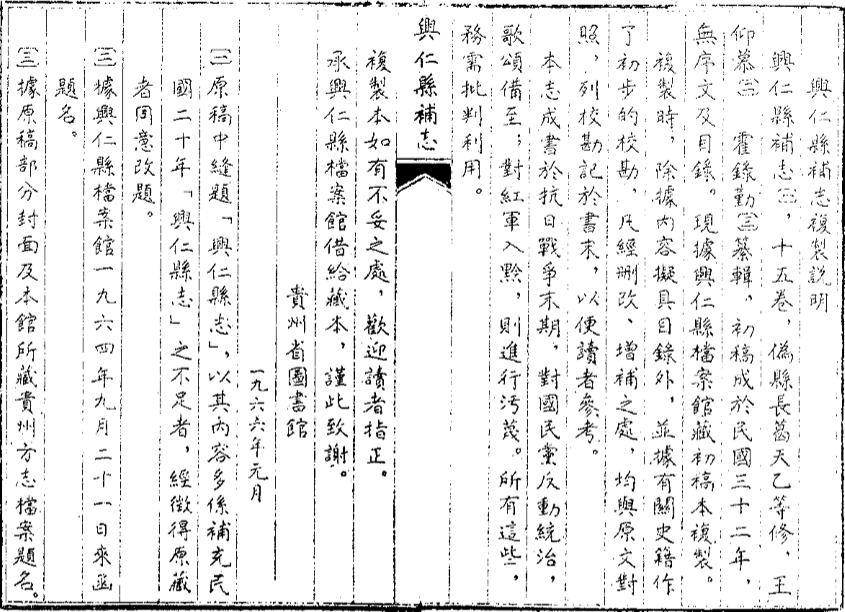 興仁縣補志複製説明
興仁縣補志㈠，十五卷，偽縣長葛天乙等修，王
仰慕㈡、霍錄勤㈢纂輯，初稿成於民國三十二年，
無序文及目錄。現據興仁縣檔案館藏初稿本複製。
複製時，除據內容擬具目錄外，並據有關史籍作
了初步的校勘，凡經刪改、增補之處，均與原文對
照，列校勘記於書末，以便讀者參考。
本志成書於抗日戰爭末期，對國民黨反動統治，
歌頌備至；對紅軍入黔，則進行污蔑。所有這些，
務需批判利用。
興仁縣補志
複製本如有不妥之處，歡迎讀者指正。
承興仁縣檔案館借給藏本，謹此致謝。
貴州省圖書館
一九六六年元月
㈠原稿中縫題「興仁縣志」，以其內容多係補充民
國二十年「興仁縣志」之不足者，經徵得原藏
者同意改題。
㈡據興仁縣檔案館一九六四年九月二十一日來函
題名。
㈢據原稿部分封面及本館所藏貴州方志檔案題名。